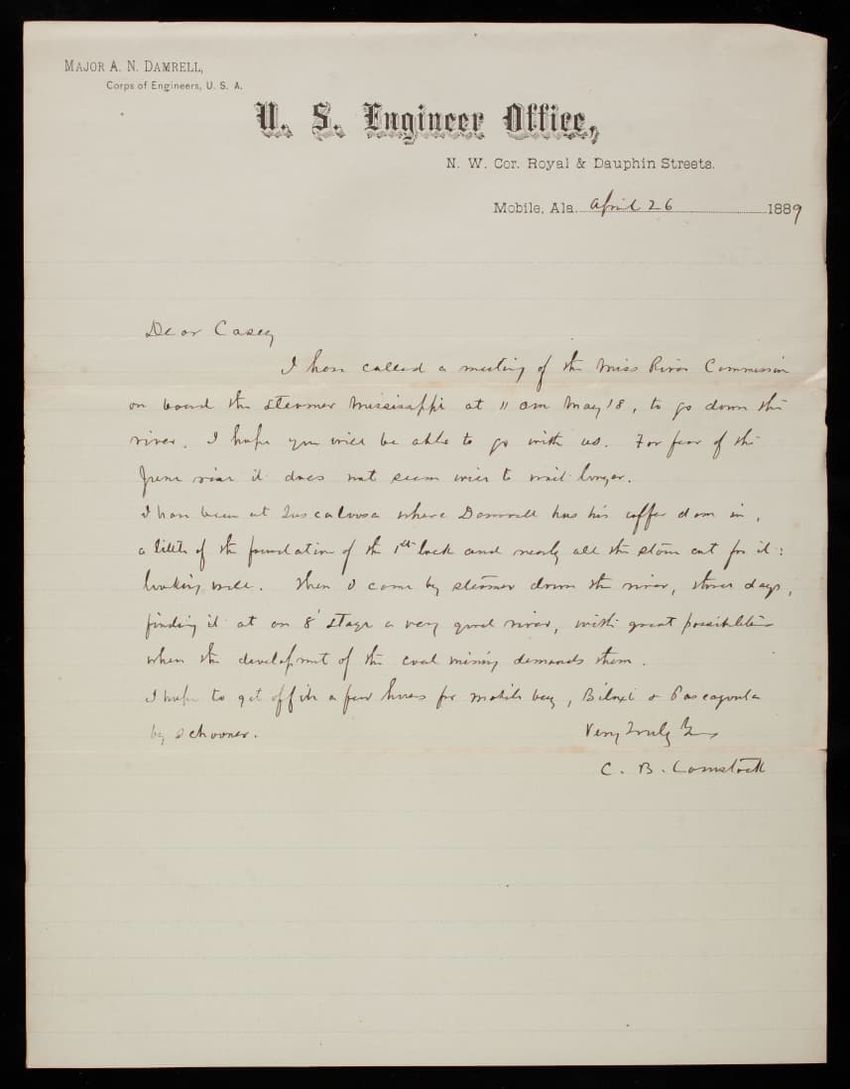 MAJOR A. N. DAMRELL,
Corps of Engineers, U. S. A.
U. S. Engineer Office,
N. W. Cor. Royal & Dauphin Streets.
Mobile, Ala. April 26 1889
Dear Casey
I have called a meeting of the Miss River Commission
on board the steamer Mississippi at 11 am May 18, to go down the
river. I hope you will be able to go with us. For fear of the
June rise it does not seem wise to wait longer.
I have been at Tuscaloosa where Damrell has his coffer dam in,
a little of the foundation of the 1st lock and nearly all the stone cut for it:
looking well. Then I came by steamer down the river, three days,
finding it at an 8' stage a very good river, with great possibilities
when the development of the coal mining demands them.
I hope to get off in a few hours for Mobile bay, Biloxi & Pascagoula
by schooner.
Very Truly Yrs
C. B. Comstock